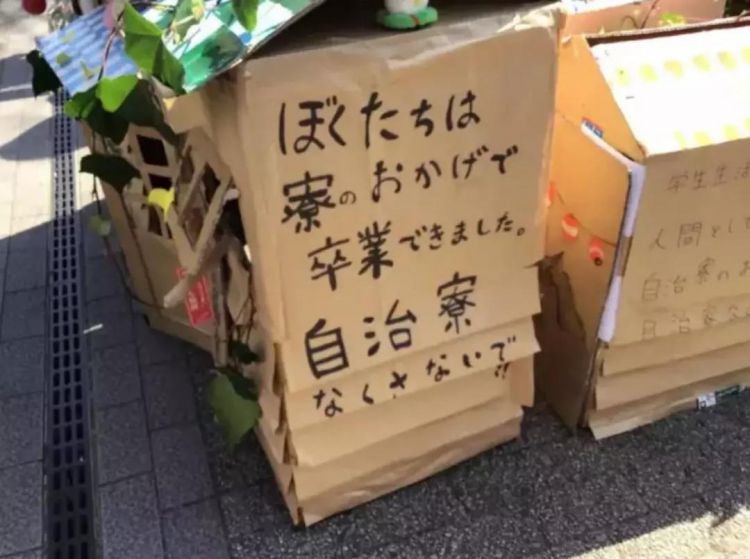 ぼくたちは
寮のおかげで
卒業できました。
自治寮
なくさないで!!
学生生活
人間とし
自治寮のお
自治寮な